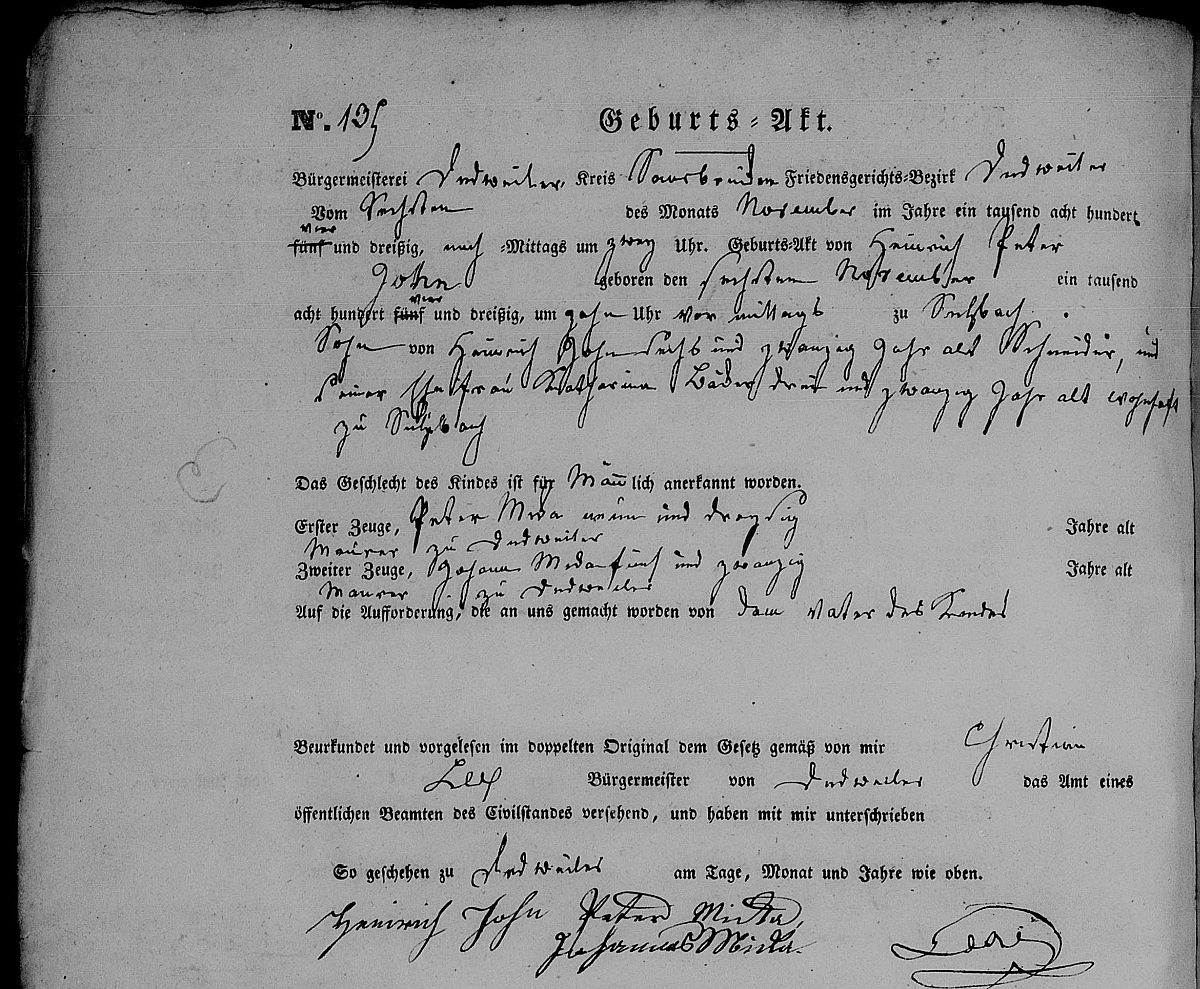 No. 135 Geburts-Akt.
Bürgermeisterei Dudweiler, Kreis Saarbrücken Friedensgerichts-Bezirk Dudweiler
Vom Sechsten des Monats November im Jahre ein tausend acht hundert
vier
fünf und dreißig, nach-Mittags um zwey Uhr. Geburts-Akt von Heinrich Peter
John geboren den sechsten November ein tausend
vier
acht hundert fünf und dreißig, um zehn Uhr vormittags zu Sulzbach.
Sohn von Heinrich John sechs und zwanzig Jahr alt Schneider, und
seiner Ehefrau Katharina Bäder drei und zwanzig Jahr alt wohnhaft
zu Sulzbach
Das Geschlecht des Kindes ist für Männlich anerkannt worden.
Erster Zeuge, Peter neun und dreysig Jahre alt
Maurer zu Dudweiler
Zweiter Zeuge, Johann fünf und zwanzig Jahre alt
Maurer zu Dudweiler
Auf die Aufforderung, die an uns gemacht worden von dem Vater des Kindes
Beurkundet und vorgelesen im doppelten Original dem Gesetz gemäß von mir Christian
Bürgermeister von Dudweiler das Amt eines
öffentlichen Beamten des Civilstandes versehend, und haben mit mir unterschrieben
So geschehen zu Dudweiler am Tage, Monat und Jahre wie oben.
Heinrich John Peter
Johannes